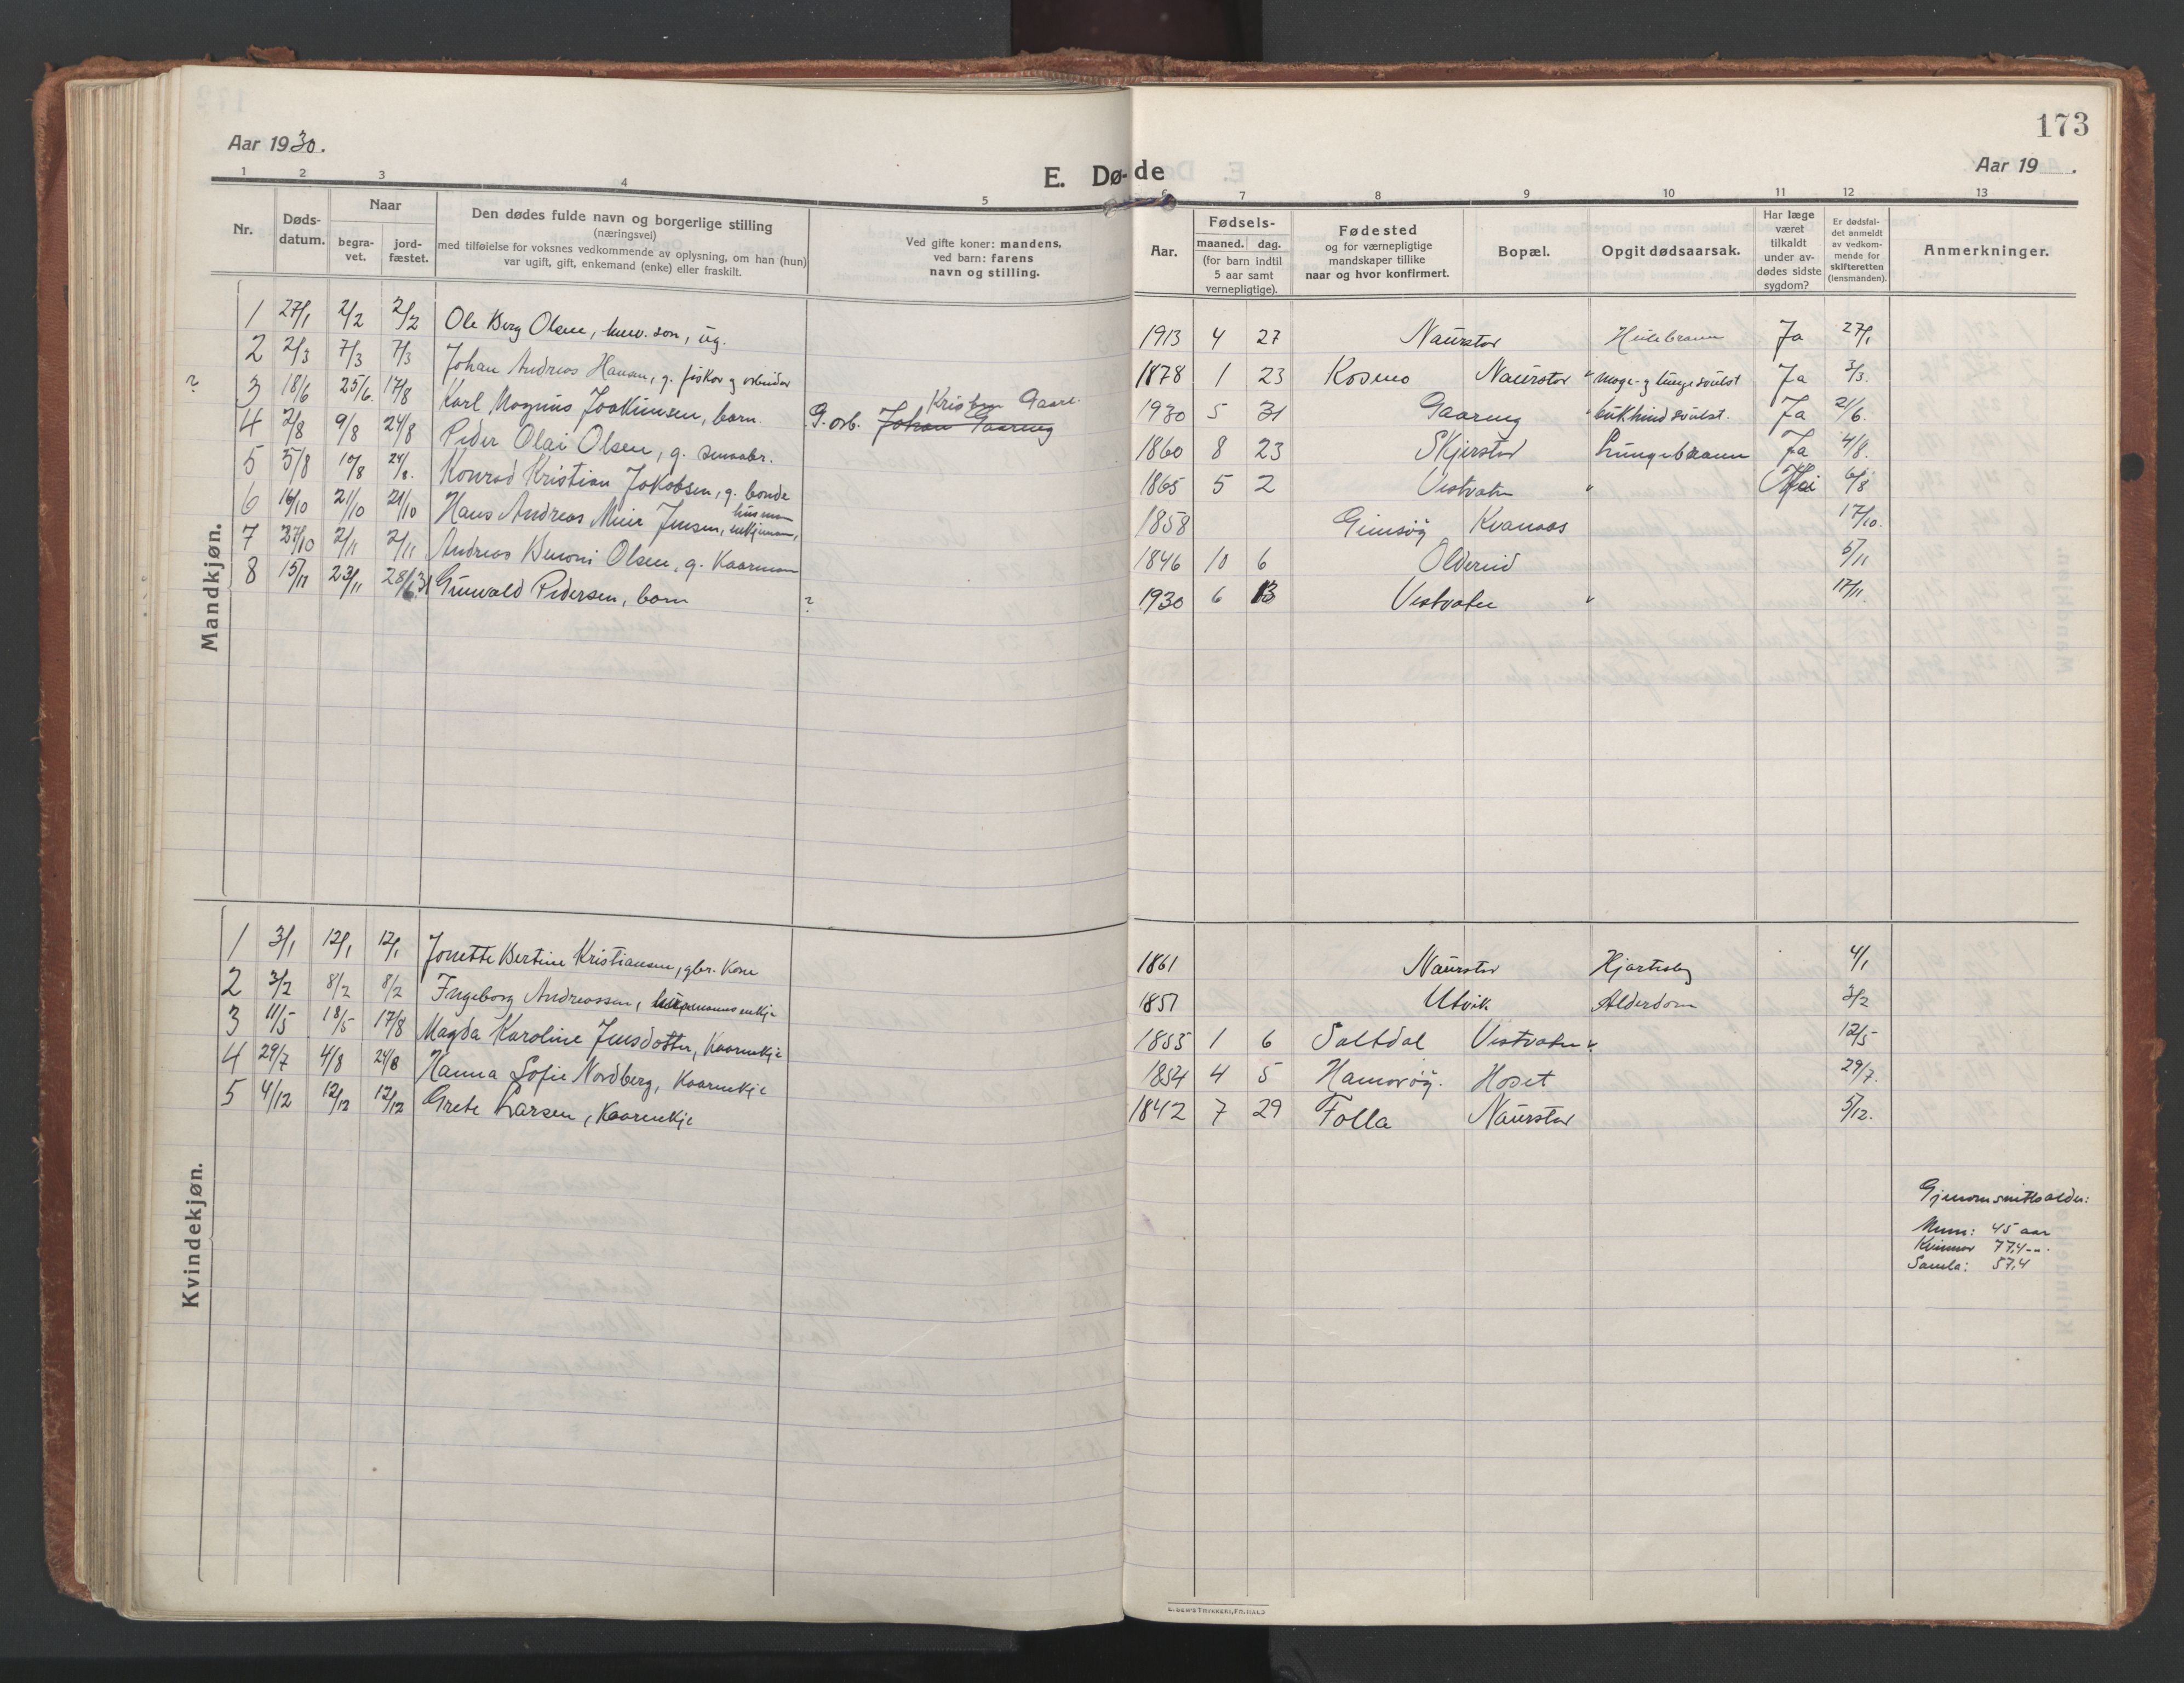 173
Aar 1930.
E. Dø-de
Aar 19 .
1 2 3 4 5 6 7 8 9 10 11 12 13
Nr.
Døds-
datum.
Naar
begra-
vet.
jord-
fæstet.
Den dødes fulde navn og borgerlige stilling
(næringsvei)
med tilføielse for voksnes vedkommende av oplysning, om han (hun)
var ugift, gift, enkemand (enke) eller fraskilt.
Ved gifte koner: mandens,
ved barn: farens
navn og stilling.
Aar.
Fødsels-
maaned. dag.
(for barn indtil
5 aar samt
vernepligtige).
Fødested
og for værnepligtige
mandskaper tillike
naar og hvor konfirmert.
Bopæl.
Opgit dødsaarsak.
Har læge
været
tilkaldt
under av-
dødes sidste
sygdom?
Er dødsfal-
det anmeldt
av vedkom-
mende for
skifteretten
(lensmanden).
Anmerkninger.
Mandkjøn.
1 27/1 2/2 2/2 Ole Berg Olsen, son, ug. 1913 4 27 Naurstad Ja 27/1
2 2/3 7/3 7/3 Johan Andreas Hansen, g. fisker og arbeider 1878 1 23 Kosmo Naurstad " mage- og lungesvulst Ja 3/3.
? 3 18/6 25/6. 17/8 Karl Magnus Joakimsen, barn. G. arb. Johan Gaaring 1930 5 31 Gaaring " bukhindsvulst. Ja 21/6.
4 2/8 9/8 24/8 Peder Olai Olsen, g. 1860 8 23 Skjerstad Lungebetann Ja 4/8.
5 5/8 10/8 24/8. Konrad Kristian Jakobsen, g. bonde 1865 5 2 Vestvatn " 6/8
6 16/10 21/10 21/10 Hans Andreas Meier Jensen, enkjemann, husmann 1858 Gimsøy Kvanaas 17/10.
7 27/10 2/11 2/11 Andreas Benoni Olsen, g. Kaarmann 1846 10 6 Oldereid 5/11
8 15/11 23/11 28/6 31 Gunvald Pedersen, barn ? 1930 6 13 Vestvatn " 17/11.
Kvindekjøn.
1 3/1 12/1 12/1 Jonette Bertine Kristiansen, gbr. Kone 1861 Naurstad Hjartesleg 4/1
2 3/2 8/2 8/2 Ingeborg Andreassen, husmannsenkje 1851 Utvik Alderdom 3/2
3 11/5 18/5 17/8 Magda Karoline Jensdotter, Kaarenkje 1853 1 6 Saltdal Vestvatn " 12/5
4 29/7 4/8 24/8 Hanna Sofie Nordberg, Kaarenkje 1854 4 5 Hamarøy. Hoset 29/7.
5 4/12 12/12 12/12 Grete Larsen, Kaarenkje 1842 7 29 Folla Naurstad 5/12.
Gjenomsnittsalder:
Menn: 45 aar
Kvinnor 77,4 --
Samla: 57,4